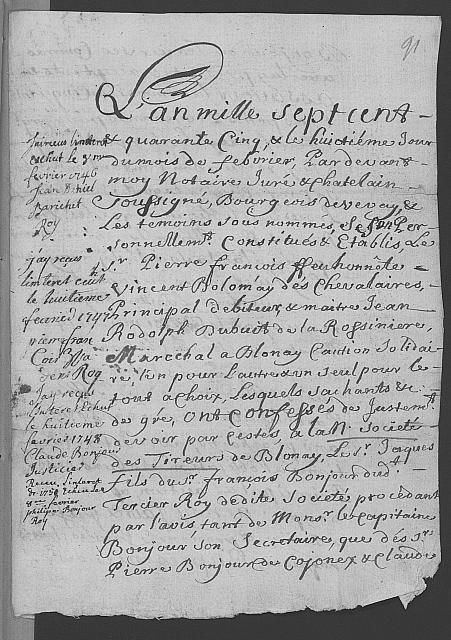 91
L'an mille Sept cent
& quarante Cinq, & le huictième Jour
du mois de febvrier, Par devant
moy Notaire Juré & Chatelain
Soussigné, Bourgeois de Vevay, &
Les temoins sous nommés, Se sont Per-
sonnellem.t Constitués & Etablis, Le
S.r Pierre françois ffeu honnête
Vincent Dolomay des Chevalaires,
Principal debiteur, & maitre Jean
Rodolph Dubuit de la Rossiniere,
Maréchal a Blonay Caution Solidai-
re, l'un pour L'autre & un seul pour le
tout a choix, Lesquels sachants &c:
de gré, ont Confessés de Justem.t
devoir par cestes, a la N: Societé
des Tireurs de Blonay, Le S.r Jaques
fils du S.r françois Bonjour dud.t
Tercier Roy de dite Societé procedant
par l'avis, tant de Mons.r le capitaine
Bonjour Son Secretaire, que des S.rs
Pierre Bonjour de Cojonex & Claude
J'ai reçus l'interet
eschut le 8me
fevrier 1746
Jean Daniel
Roy
j'ay reçus
l'interet
le huitieme
fevrier 1747
Roy
J'ay reçus
l'interet Echut
le huitieme
fevrier 1748
Claude Bonjour
Justicier
Reçeu l'interet
de 1750
8me fevrier
philippe Bonjour
Roy